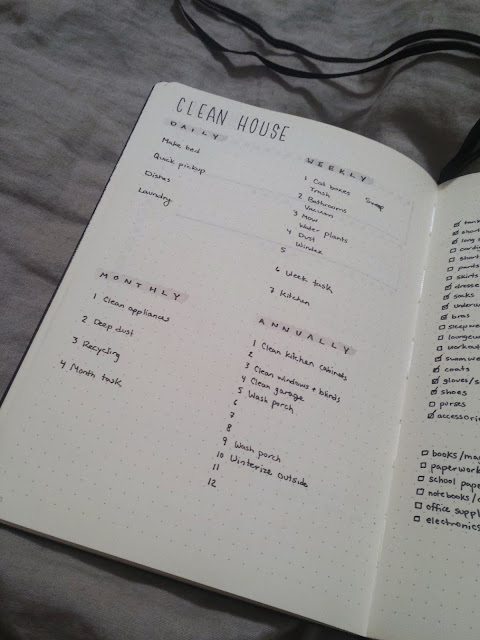 CLEAN HOUSE
DAILY
Make bed
Quick pickup
Dishes
Laundry
WEEKLY
1 Cat boxes Sweep
Trash
2 Bathrooms
Vacuum
3 Mow
Water plants
4 Dust
Windex
5
6 Week task
7 Kitchen
MONTHLY
1 Clean appliances
2 Deep dust
3 Recycling
4 Month task
ANNUALLY
1 Clean kitchen cabinets
2
3 Clean windows + blinds
4 Clean garage
5 Wash porch
6
7
8
9 Wash porch
10 Winterize outside
11
12
tank
short
long s
cardig
short
pants
skirts
dresse
socks
underw
bras
sleepwe
loungew
workou
swimwe
coats
gloves/s
shoes
purses
accessorie
books/ma
paperwork
school pape
notebooks/
office suppl
electronics